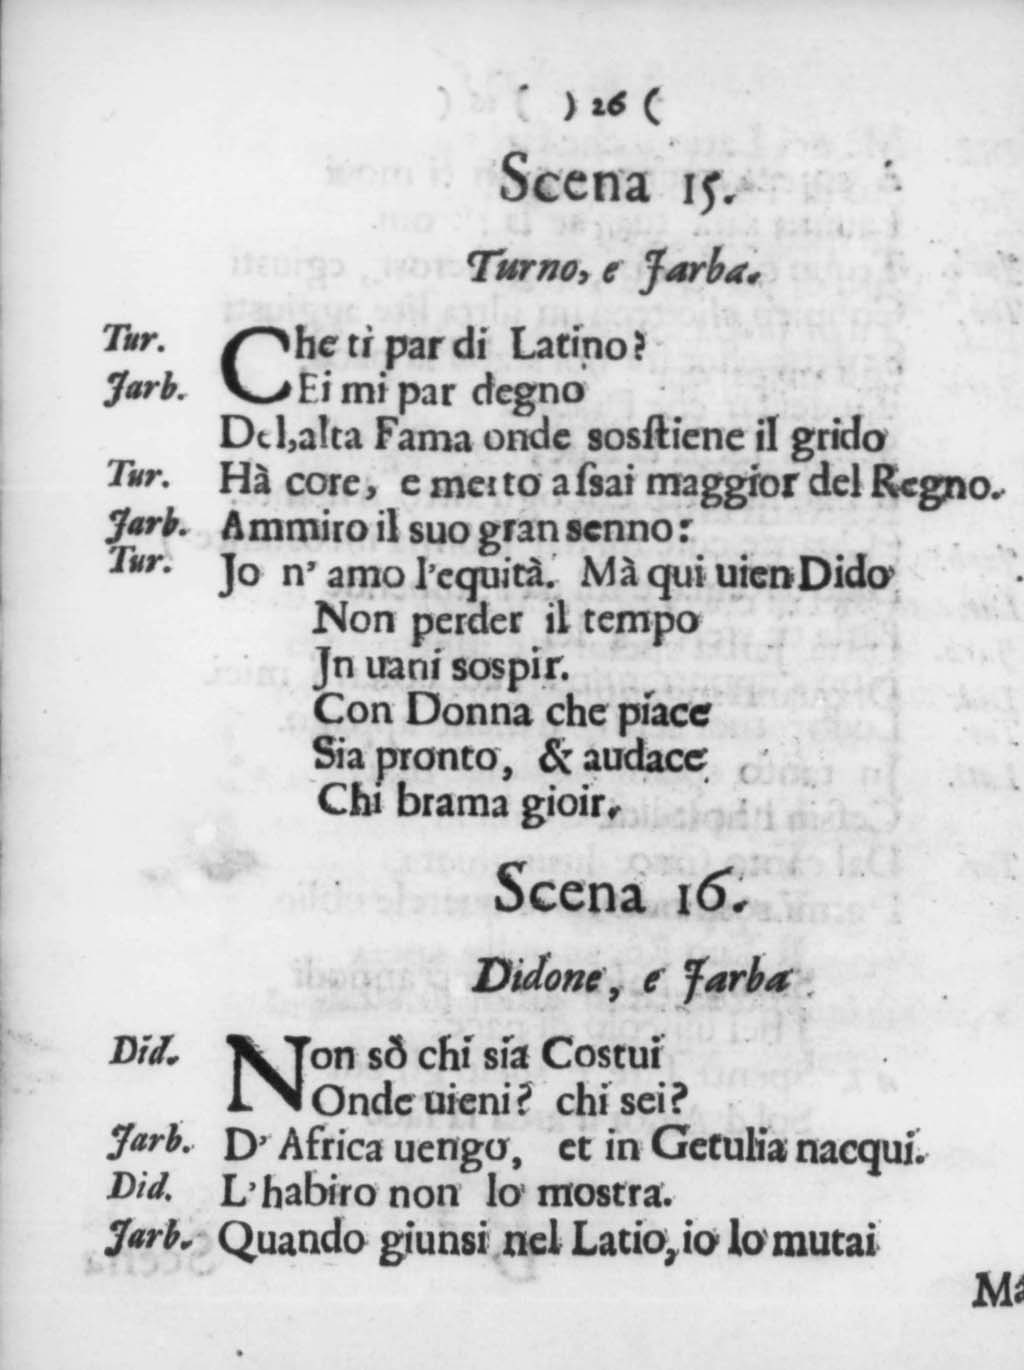 ) 26 (
Scena 15.
Turno, e Jarba.
Tur. Che ti par di Latino?
Jarb. Ei mi par degno
Del,alta Fama onde sosſtiene il grido
Tur. Hà core, e merto aſsai maggior del Regno.
Jarb. Ammiro il suo gran senno:
Tur. Jo n' amo l'equità. Mà qui uien Dido
Non perder il tempo
Jn uani sospir.
Con Donna che piace
Sia pronto, & audace
Chi brama gioir.
Scena 16.
Didone, e Jarba.
Did. Non sò chi sia Costui
Onde uieni? chi sei?
Jarb. D' Africa uengo, et in Getulia nacqui.
Did. L'habiro non lo mostra.
Jarb. Quando giunsi nel Latio, io lo mutai
Má